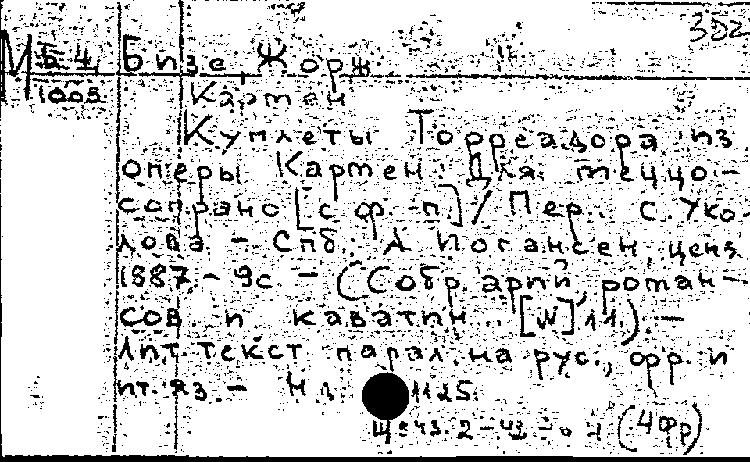 352
М Б 4 Бизе Жорж
1003 Кармен
Куплеты Торреадора из
оперы Кармен. Для меццо-
сопрано [с ф.-п] / Пер. С. Уко
лова. - Спб.: А Иогансен, ценз.
1887. - 9с. - (Собр. арий, роман-
сов и каватин.. [N] 11.). -
Лит. текст парал. на рус., фр. и
ит. яз. - Н.д. 1125.
(4фр)